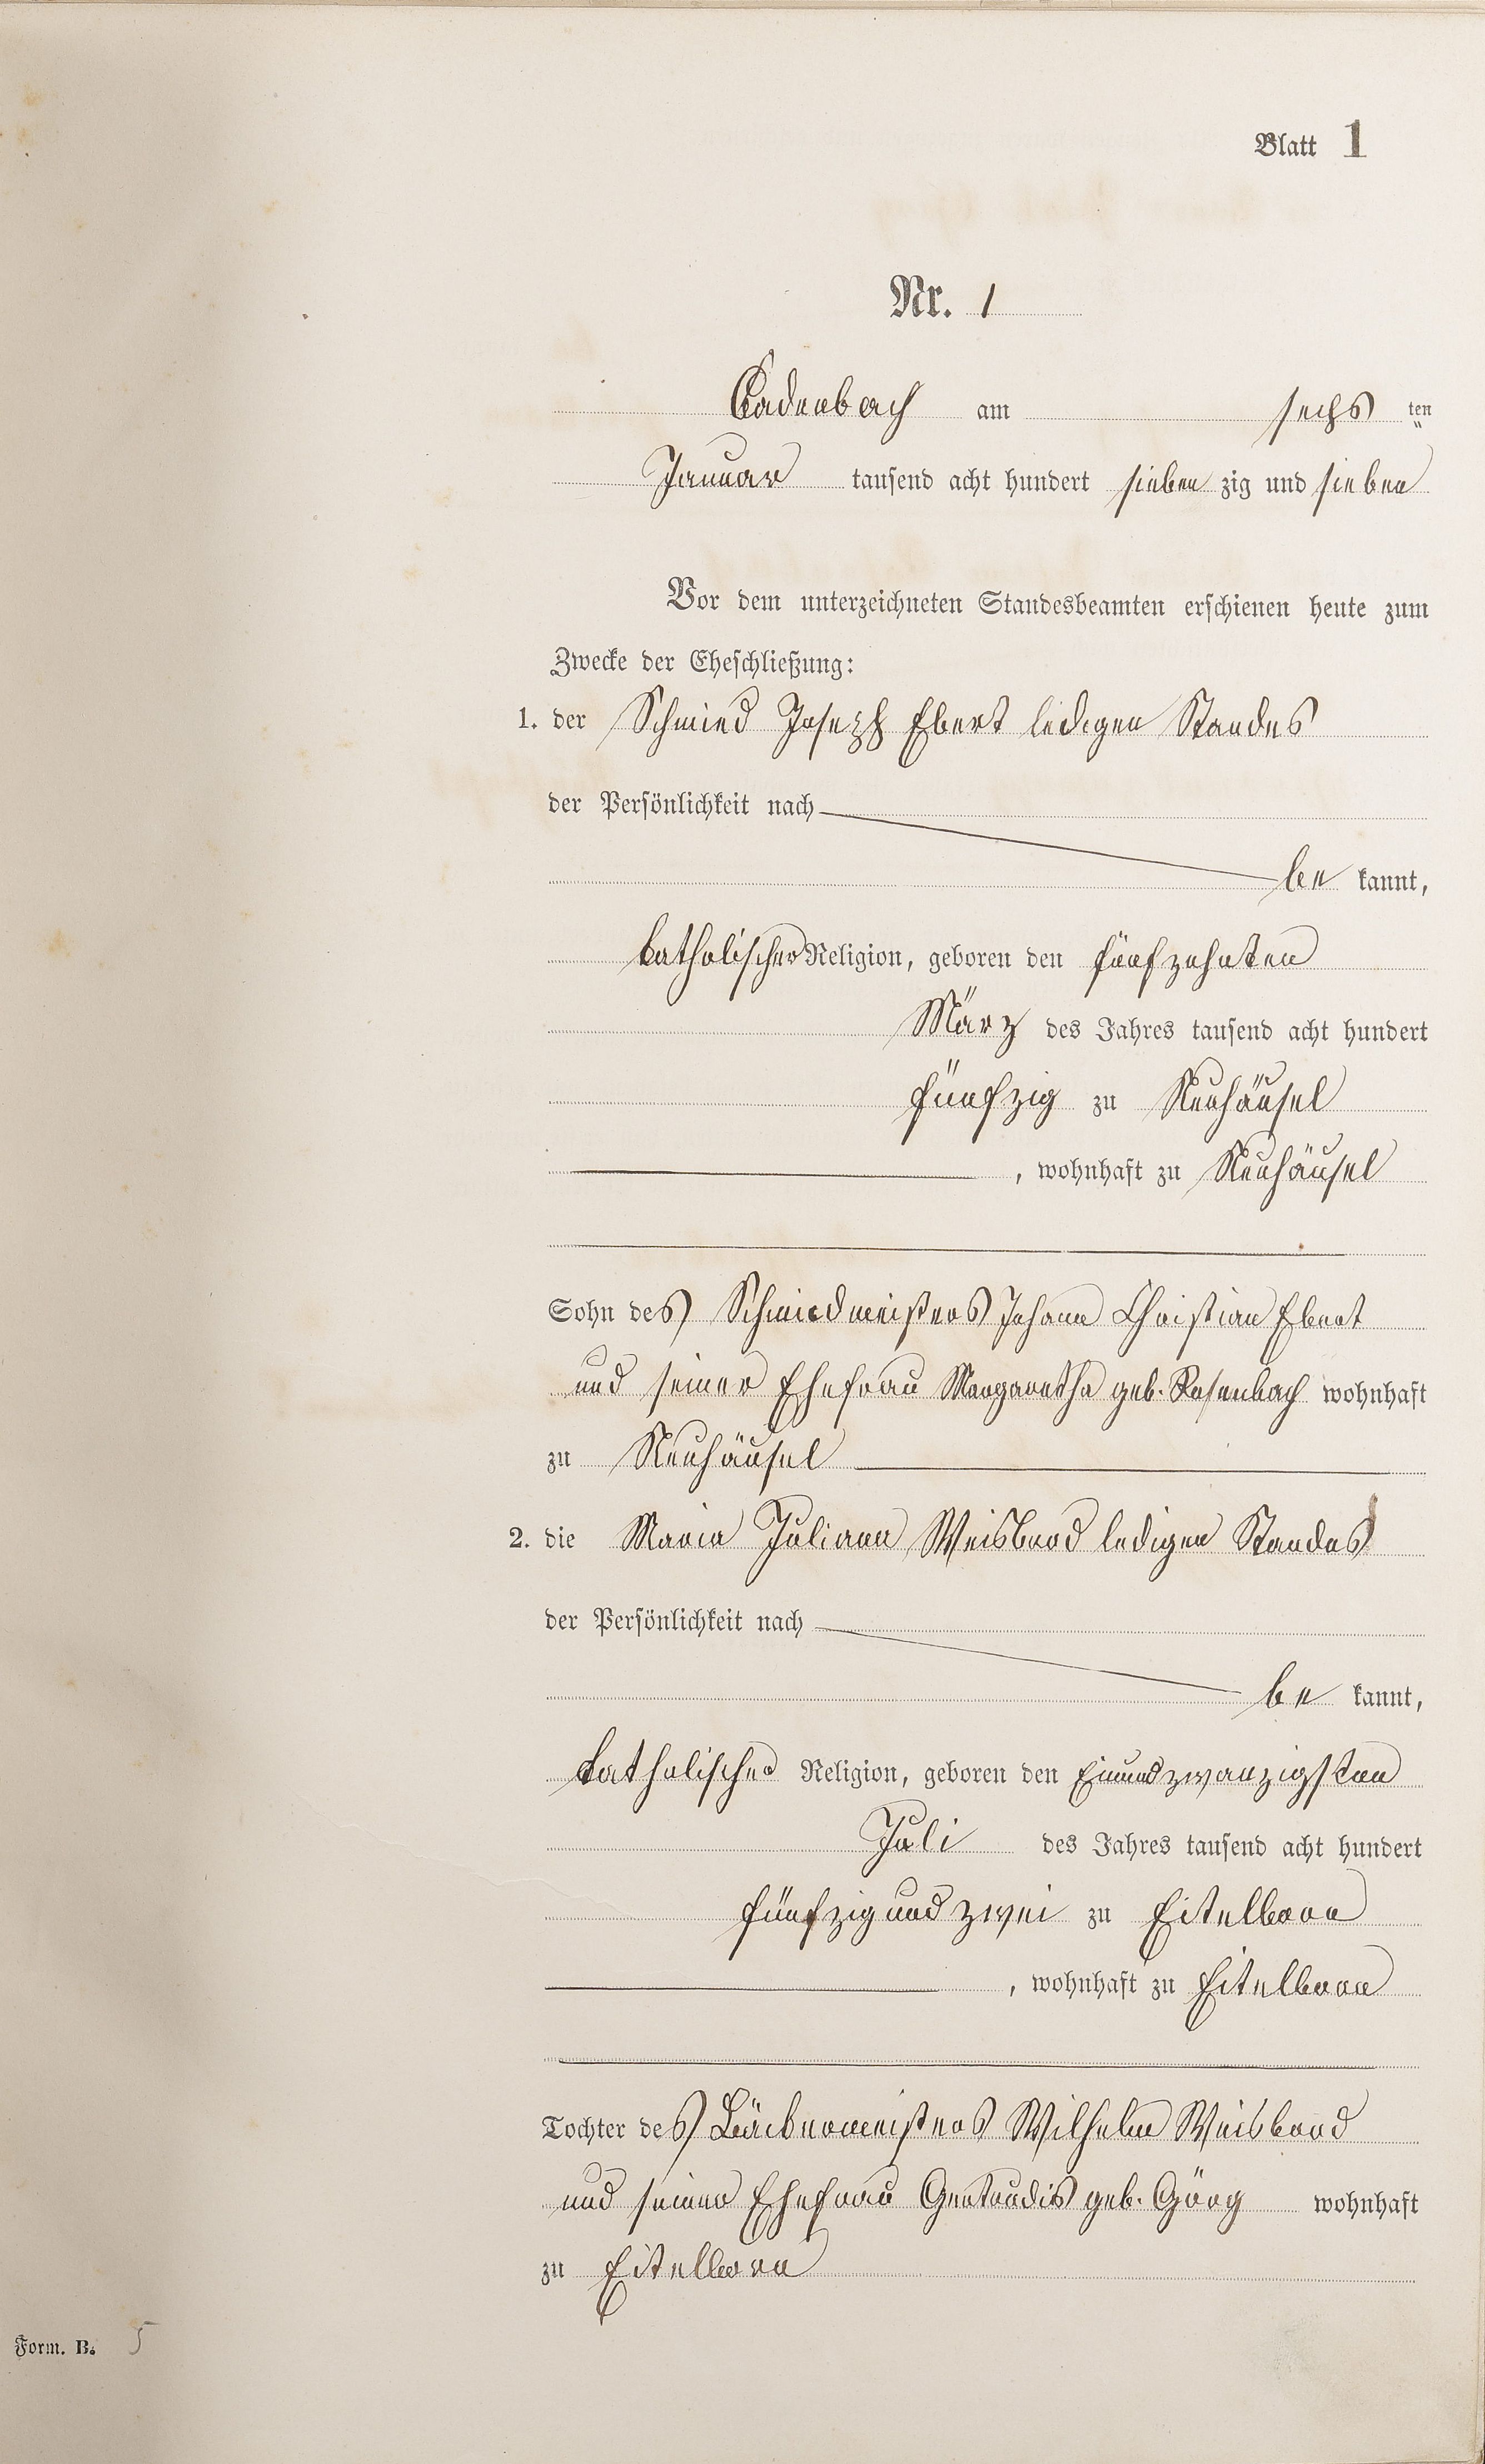 Blatt 1
Nr. 1
Cadenbach am sechs ten
Januar tausend acht hundert sieben zig und sieben
Vor dem unterzeichneten Standesbeamten erschienen heute zum
Zwecke der Eheschließung:
1. der Schmied Joseph Ebert ledigen Standes
der Persönlichkeit nach
be kannt,
katholischer Religion, geboren den fünfzehnten
März des Jahres tausend acht hundert
fünfzig zu Neuhäusel
, wohnhaft zu Neuhäusel
Sohn des Schmiedmeisters Johann Christian Ebert
und seiner Ehefrau Margaretha geb. Rosenbach wohnhaft
zu Neuhäusel
2. die Maria Juliana Weisbrod ledigen Standes
der Persönlichkeit nach
be kannt,
katholischer Religion, geboren den Einundzwanzigsten
Juli des Jahres tausend acht hundert
fünfzig und zwei zu Eitelborn
, wohnhaft zu Eitelborn
Tochter des Bäckermeisters Wilhelm Weisbrod
und seiner Ehefrau Gertrudis geb. Görg wohnhaft
zu Eitelborn
Form. B. 5